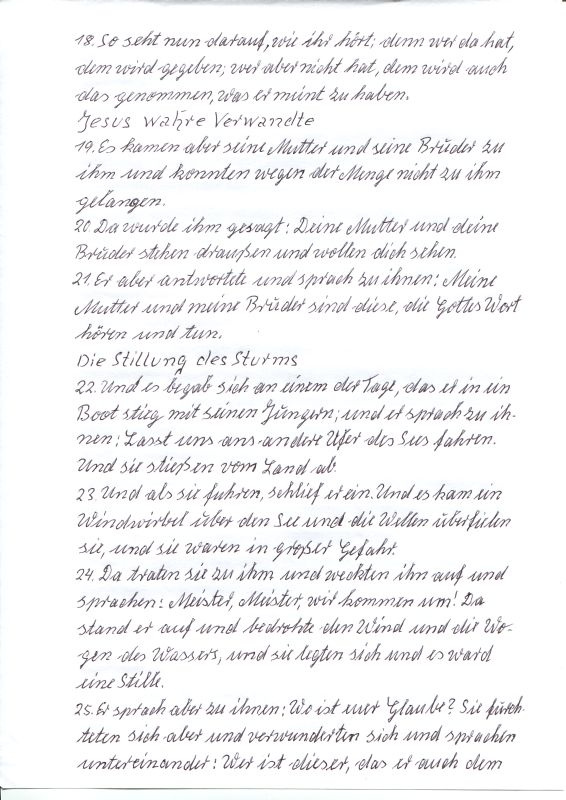 18. So seht nun darauf, wie ihr hört; denn wer da hat,
dem wird gegeben; wer aber nicht hat, dem wird auch
das genommen, was er meint zu haben.
Jesus wahre Verwandte
19. Es kamen aber seine Mutter und seine Brüder zu
ihm und konnten wegen der Menge nicht zu ihm
gelangen.
20 Da wurde ihm gesagt: Deine Mutter und deine
Brüder stehen draußen und wollen dich sehen.
21. Er aber antwortete und sprach zu ihnen: Meine
Mutter und meine Brüder sind diese, die Gottes Wort
hören und tun.
Die Stillung des Sturms
22. Und es begab sich an einem der Tage, das er in ein
Boot stieg mit seinen Jüngern; und er sprach zu ih-
nen: Lasst uns ans andere Ufer des Sees fahren.
Und sie stießen vom Land ab.
23. Und als sie fuhren, schlief er ein. Und es kam ein
Windwirbel über den See und die Wellen überfielen
sie, und sie waren in großer Gefahr.
24. Da traten sie zu ihm und weckten ihn auf und
sprachen: Meister, Meister, wir kommen um! Da
stand er auf und bedrohte den Wind und die Wo-
gen des Wassers, und sie legten sich und es ward
eine Stille.
25. Er sprach aber zu ihnen: Wo ist euer Glaube? Sie fürch-
teten sich aber und verwunderten sich und sprachen
untereinander: Wer ist dieser, das er auch dem